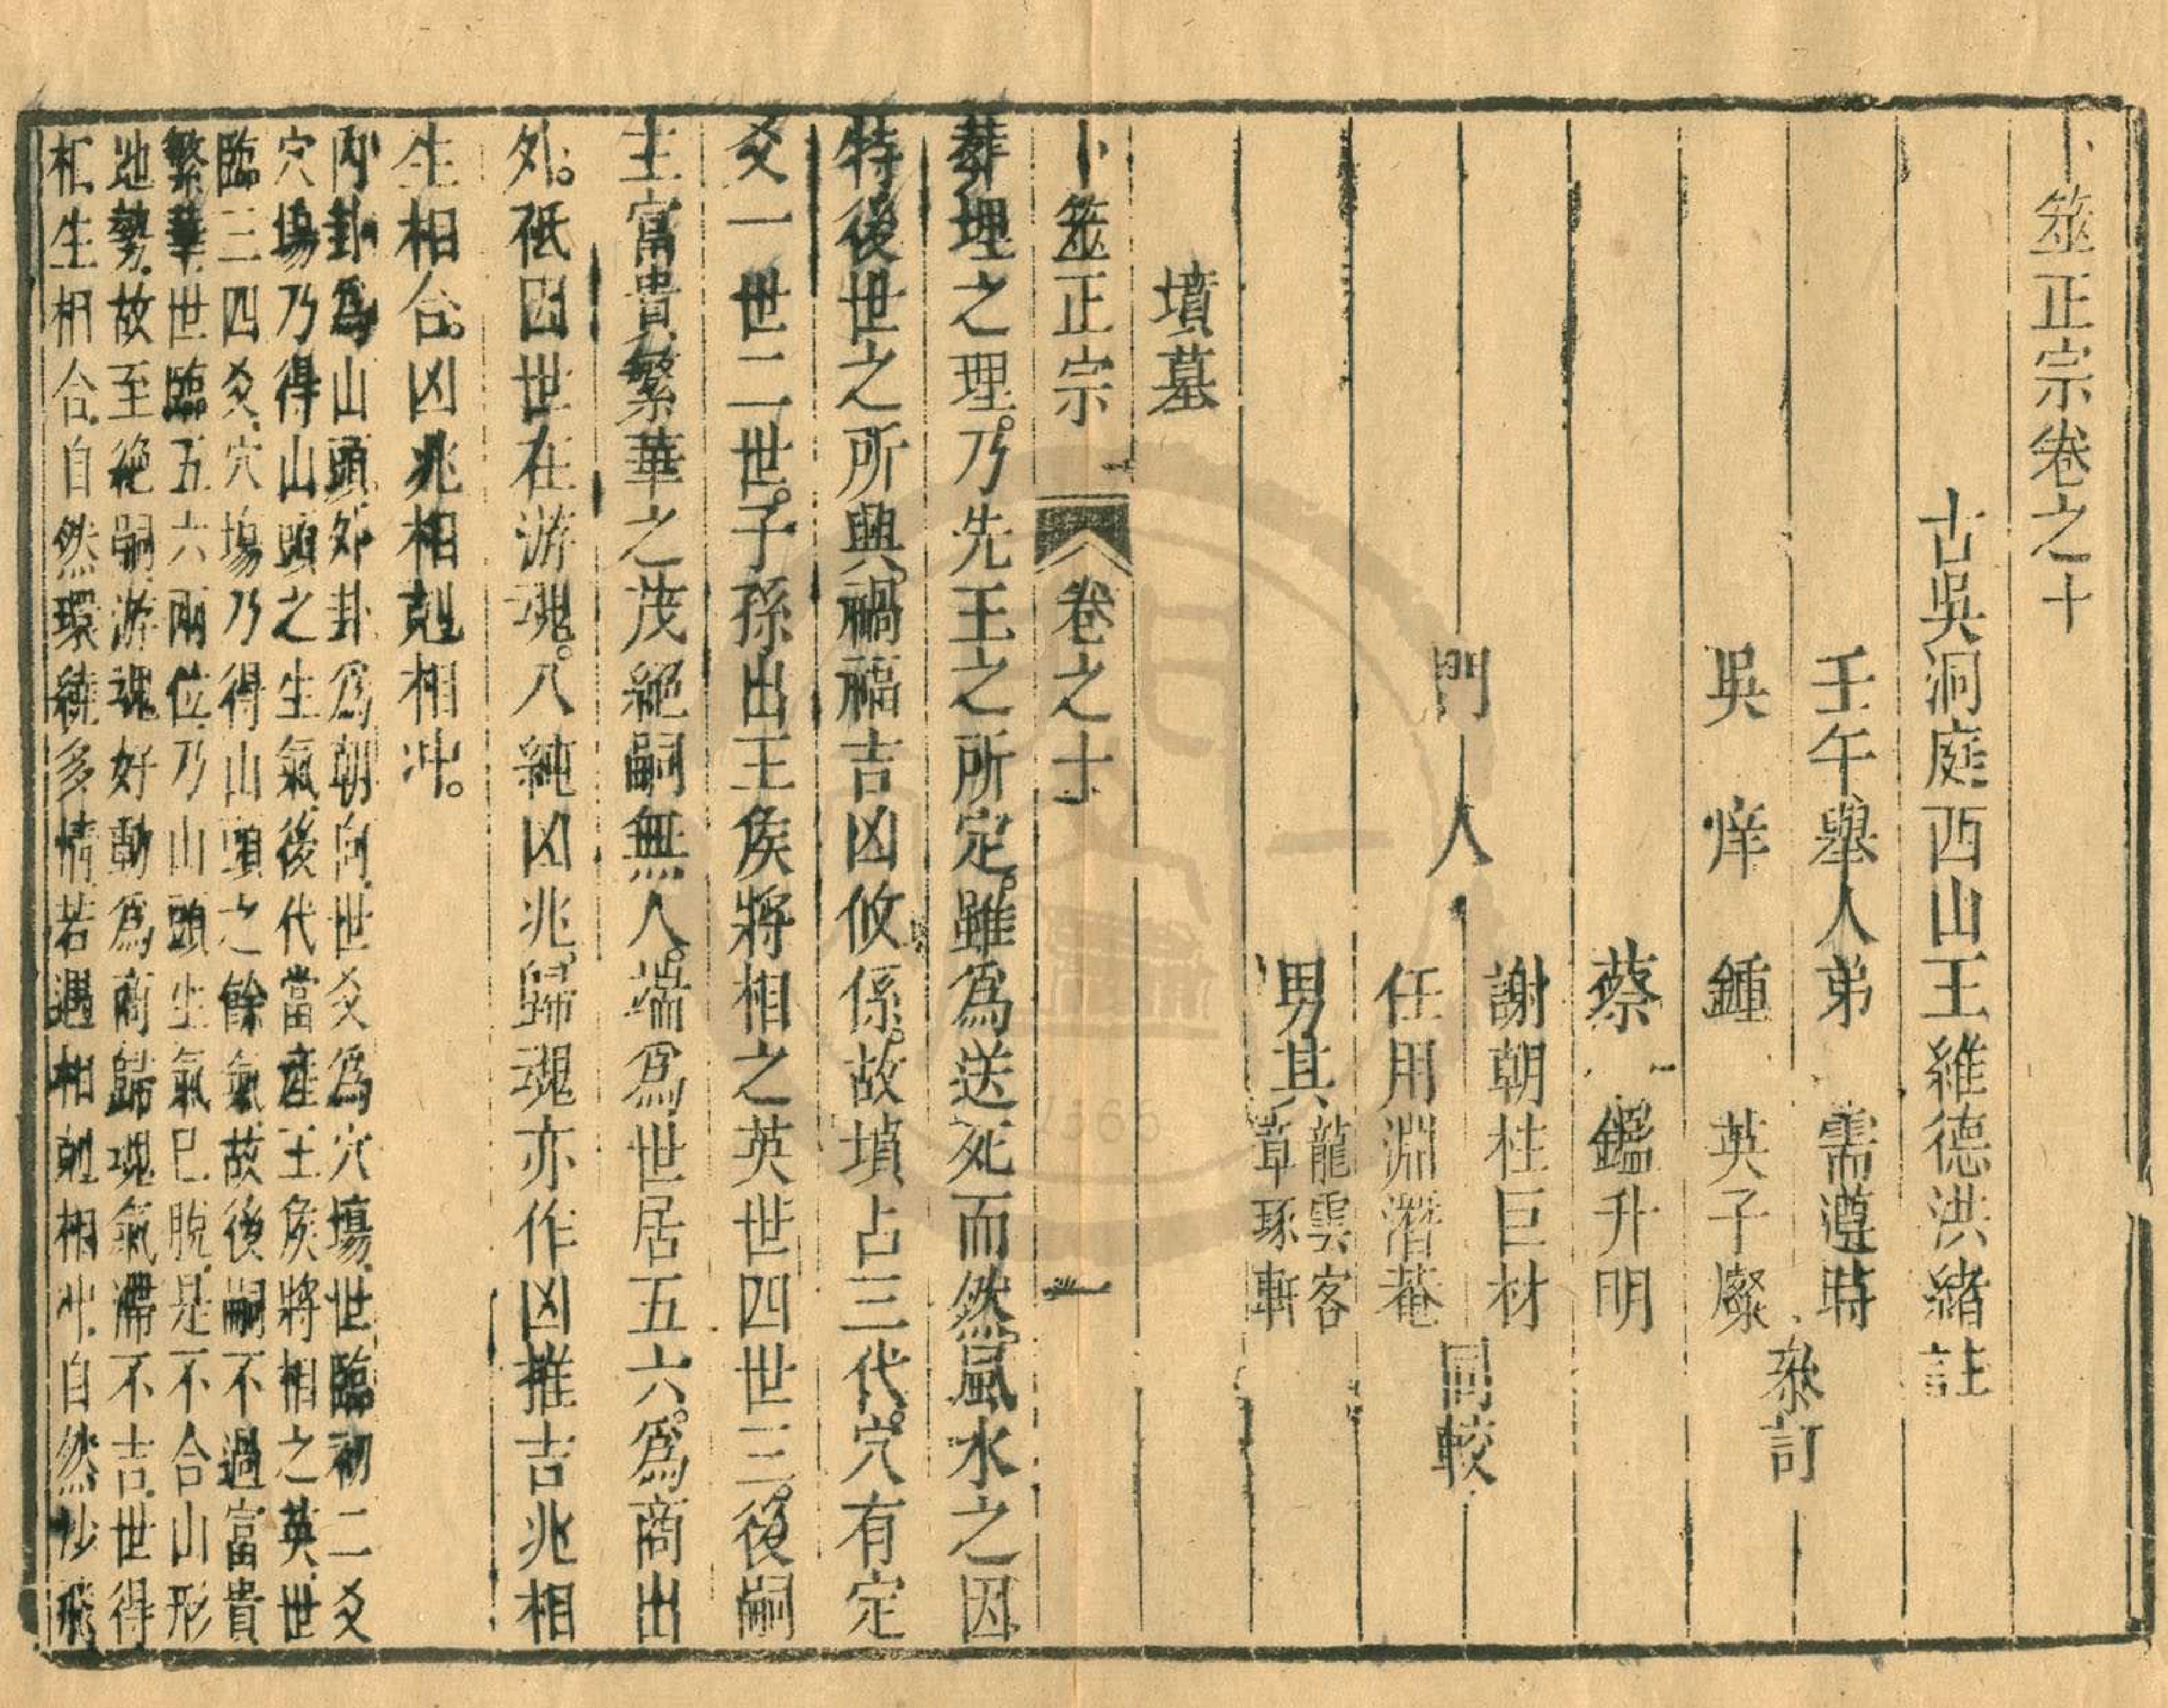 卜筮正宗卷之十
古吳洞庭西山王維德洪緒註
壬午舉人弟需遵時
吳庠鍾英子燦
叅訂
蔡鑑升明
謝朝柱巨材
門人
任用淵潛菴
同較
男其龍雲客
章琢軒
墳墓
卜筮正宗
卷之十
一
葬埋之理。乃先王之所定。雖爲送死而然。風水之因
特後世之所興。禍福吉凶攸係。故墳占三代。穴有定
爻一世二世。子孫出王矦將相之英世四世三。後嗣
主富貴繁華之茂絕嗣無人。端爲世居五六。爲商出
外。祇因世在游魂。八純凶兆。歸魂亦作凶推吉兆相
生相合。凶兆相剋相冲。
內卦爲山頭外卦爲朝向.世爻爲穴塲.世臨初二爻
穴塲乃得山頭之生氣.後代當產王矦將相之英.世
臨三四爻.穴塲乃得山頭之餘氣.故後嗣不過富貴
繁華.世臨五六兩位.乃山頭生氣已脫.是不合山形
地勢.故至絕嗣.游魂好動爲商歸魂氣滯不吉.世得
相生相合.自然環繞多情若遇相剋相冲.自然沙飛